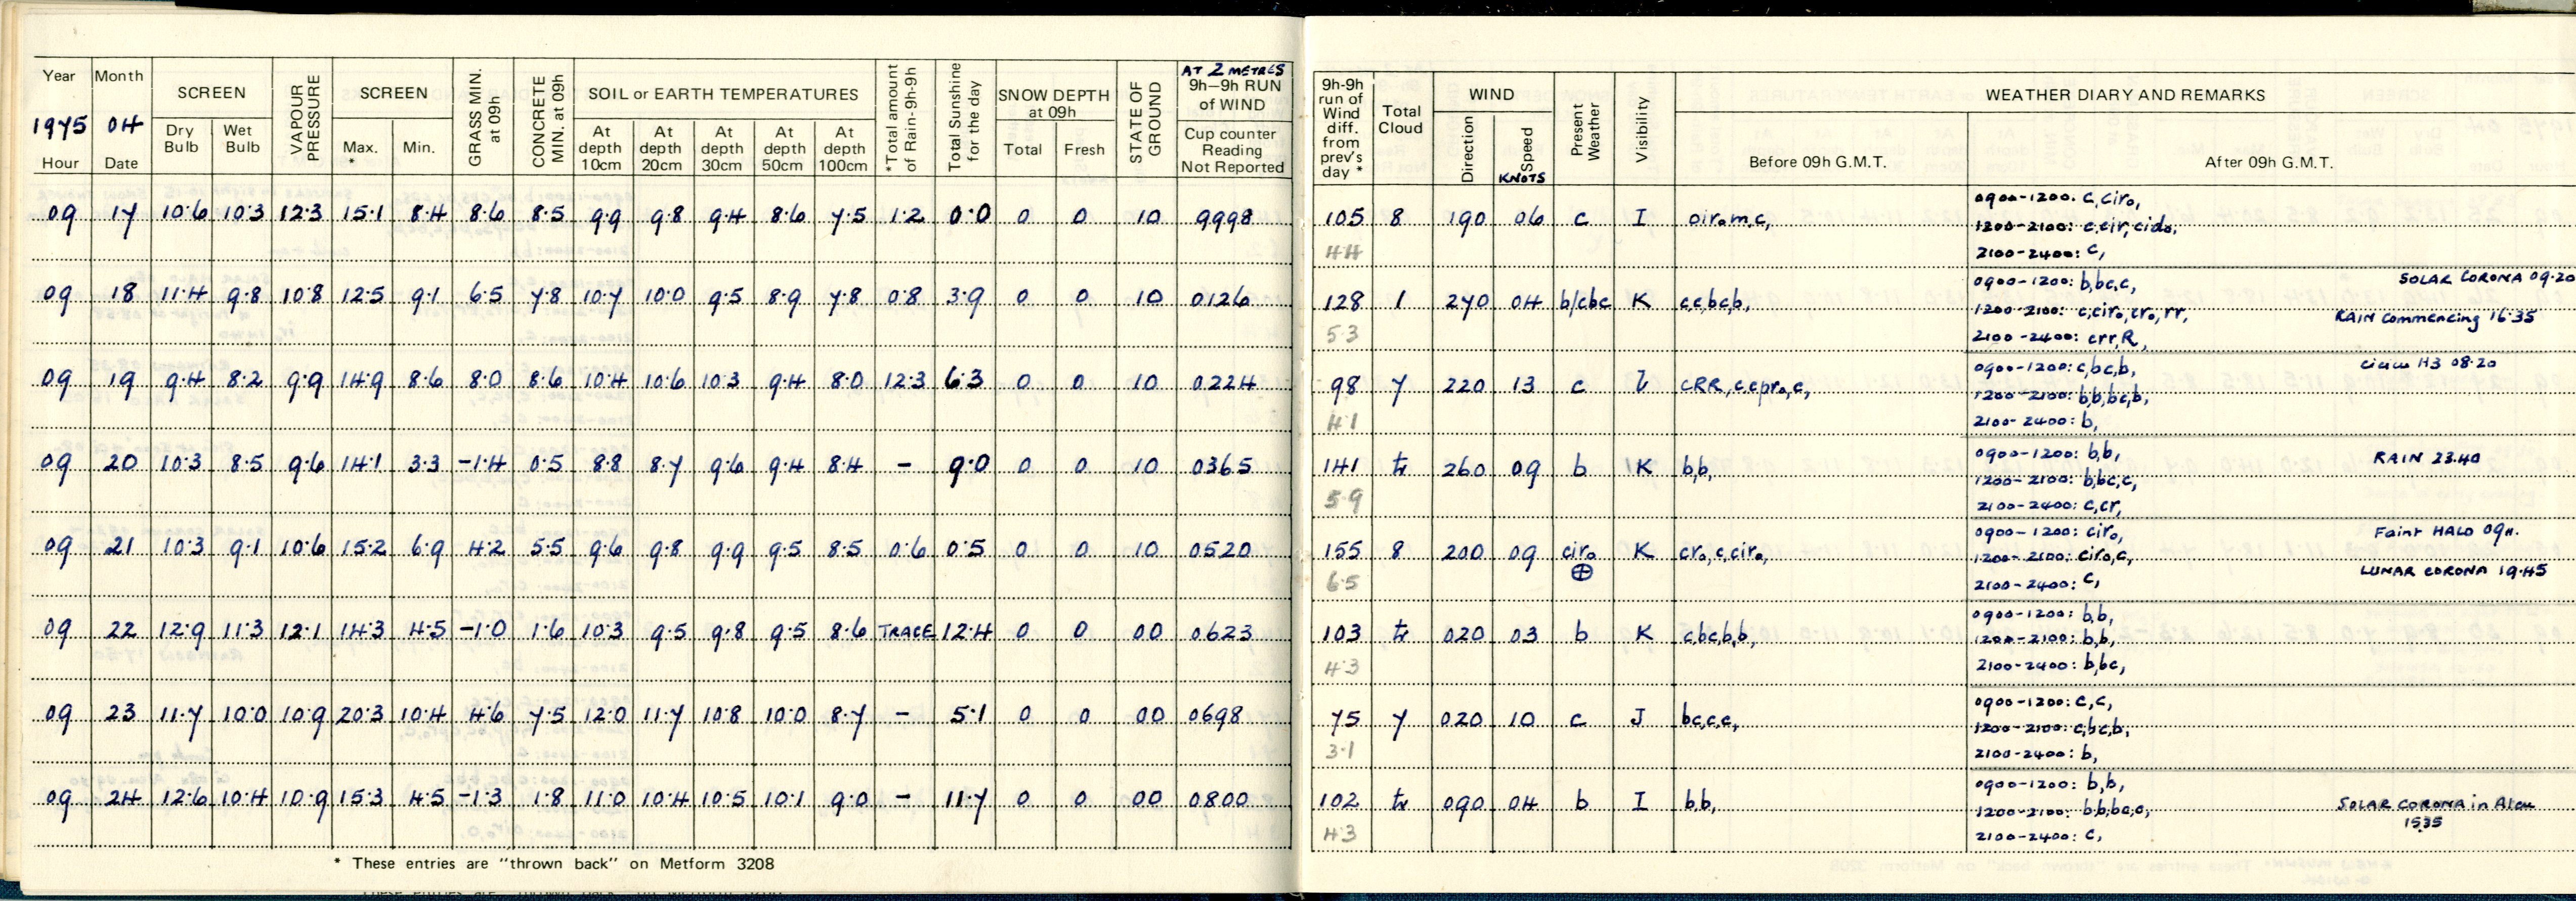 Year Month SCREEN VAPOUR PRESSURE SCREEN GRASS MIN. at 09h CONCRETE MIN. at 09h SOIL or EARTH TEMPERATURES *Total amount of Rain-9h-9h Total Sunshine for the day SNOW DEPTH at 09h STATE OF GROUND AT 2 METRES 9h-9h RUN of WIND
1975 04 Dry Bulb Wet Bulb Max. * Min. At depth 10cm At depth 20cm At depth 30cm At depth 50cm At depth 100cm Total Fresh Cup counter Reading Not Reported
Hour Date
09 17 10.6 10.3 12.3 15.1 8.4 8.6 8.5 9.9 9.8 9.4 8.6 7.5 1.2 0.0 0 0 10 9998
09 18 11.4 9.8 10.8 12.5 9.1 6.5 7.8 10.7 10.0 9.5 8.9 7.8 0.8 3.9 0 0 10 0126
09 19 9.4 8.2 9.9 14.9 8.6 8.0 8.6 10.4 10.6 10.3 9.4 8.0 12.3 6.3 0 0 10 0224
09 20 10.3 8.5 9.6 14.1 3.3 -1.4 0.5 8.8 8.7 9.6 9.4 8.4 - 9.0 0 0 10 0365
09 21 10.3 9.1 10.6 15.2 6.9 4.2 5.5 9.6 9.8 9.9 9.5 8.5 0.6 0.5 0 0 10 0520
09 22 12.9 11.3 12.1 14.3 4.5 -1.0 1.6 10.3 9.5 9.8 9.5 8.6 TRACE 12.4 0 0 00 0623
09 23 11.7 10.0 10.9 20.3 10.4 4.6 7.5 12.0 11.7 10.8 10.0 8.7 - 5.1 0 0 00 0698
09 24 12.6 10.4 10.9 15.3 4.5 -1.3 1.8 11.0 10.4 10.5 10.1 9.0 - 11.7 0 0 00 0800
* These entries are "thrown back" on Metform 3208
9h-9h run of Wind diff. from prev's day * Total Cloud WIND Present Weather Visibility WEATHER DIARY AND REMARKS
Direction Speed KNOTS Before 09h G.M.T. After 09h G.M.T.
105 8 190 06 c I oiro,m,c, 0900-1200: c,ciro,
1200-2100: c,cir,cido,
44 2100-2400: c,
128 1 270 04 b/cbc K c,c,bc,b, 0900-1200: b,bc,c, SOLAR CORONA 09.20
1200-2100: c,ciro,cro,rr, RAIN commencing 16.35
53 2100-2400: crr,R,
98 7 220 13 c cRR,c,cpro,c, 0900-1200: c,bc,b, cirrus H3 08.20
1200-2100: b,b,bc,b,
41 2100-2400: b,
141 tr 260 09 b K b,b, 0900-1200: b,b, RAIN 23.40
1200-2100: b,bc,c,
59 2100-2400: c,cr,
155 8 200 09 ciro ⊕ K cro,c,ciro, 0900-1200: ciro, Faint HALO 09H.
1200-2100: ciro,c, LUNAR CORONA 19.45
65 2100-2400: c,
103 tr 020 03 b K c,bc,b,b, 0900-1200: b,b,
1200-2100: b,b,
43 2100-2400: b,bc,
75 7 020 10 c J bc,c,c, 0900-1200: c,c,
1200-2100: c,bc,b,
31 2100-2400: b,
102 tr 090 04 b I b,b, 0900-1200: b,b,
1200-2100: b,b,bc,c, SOLAR CORONA in Alcu
43 2100-2400: c, 1535